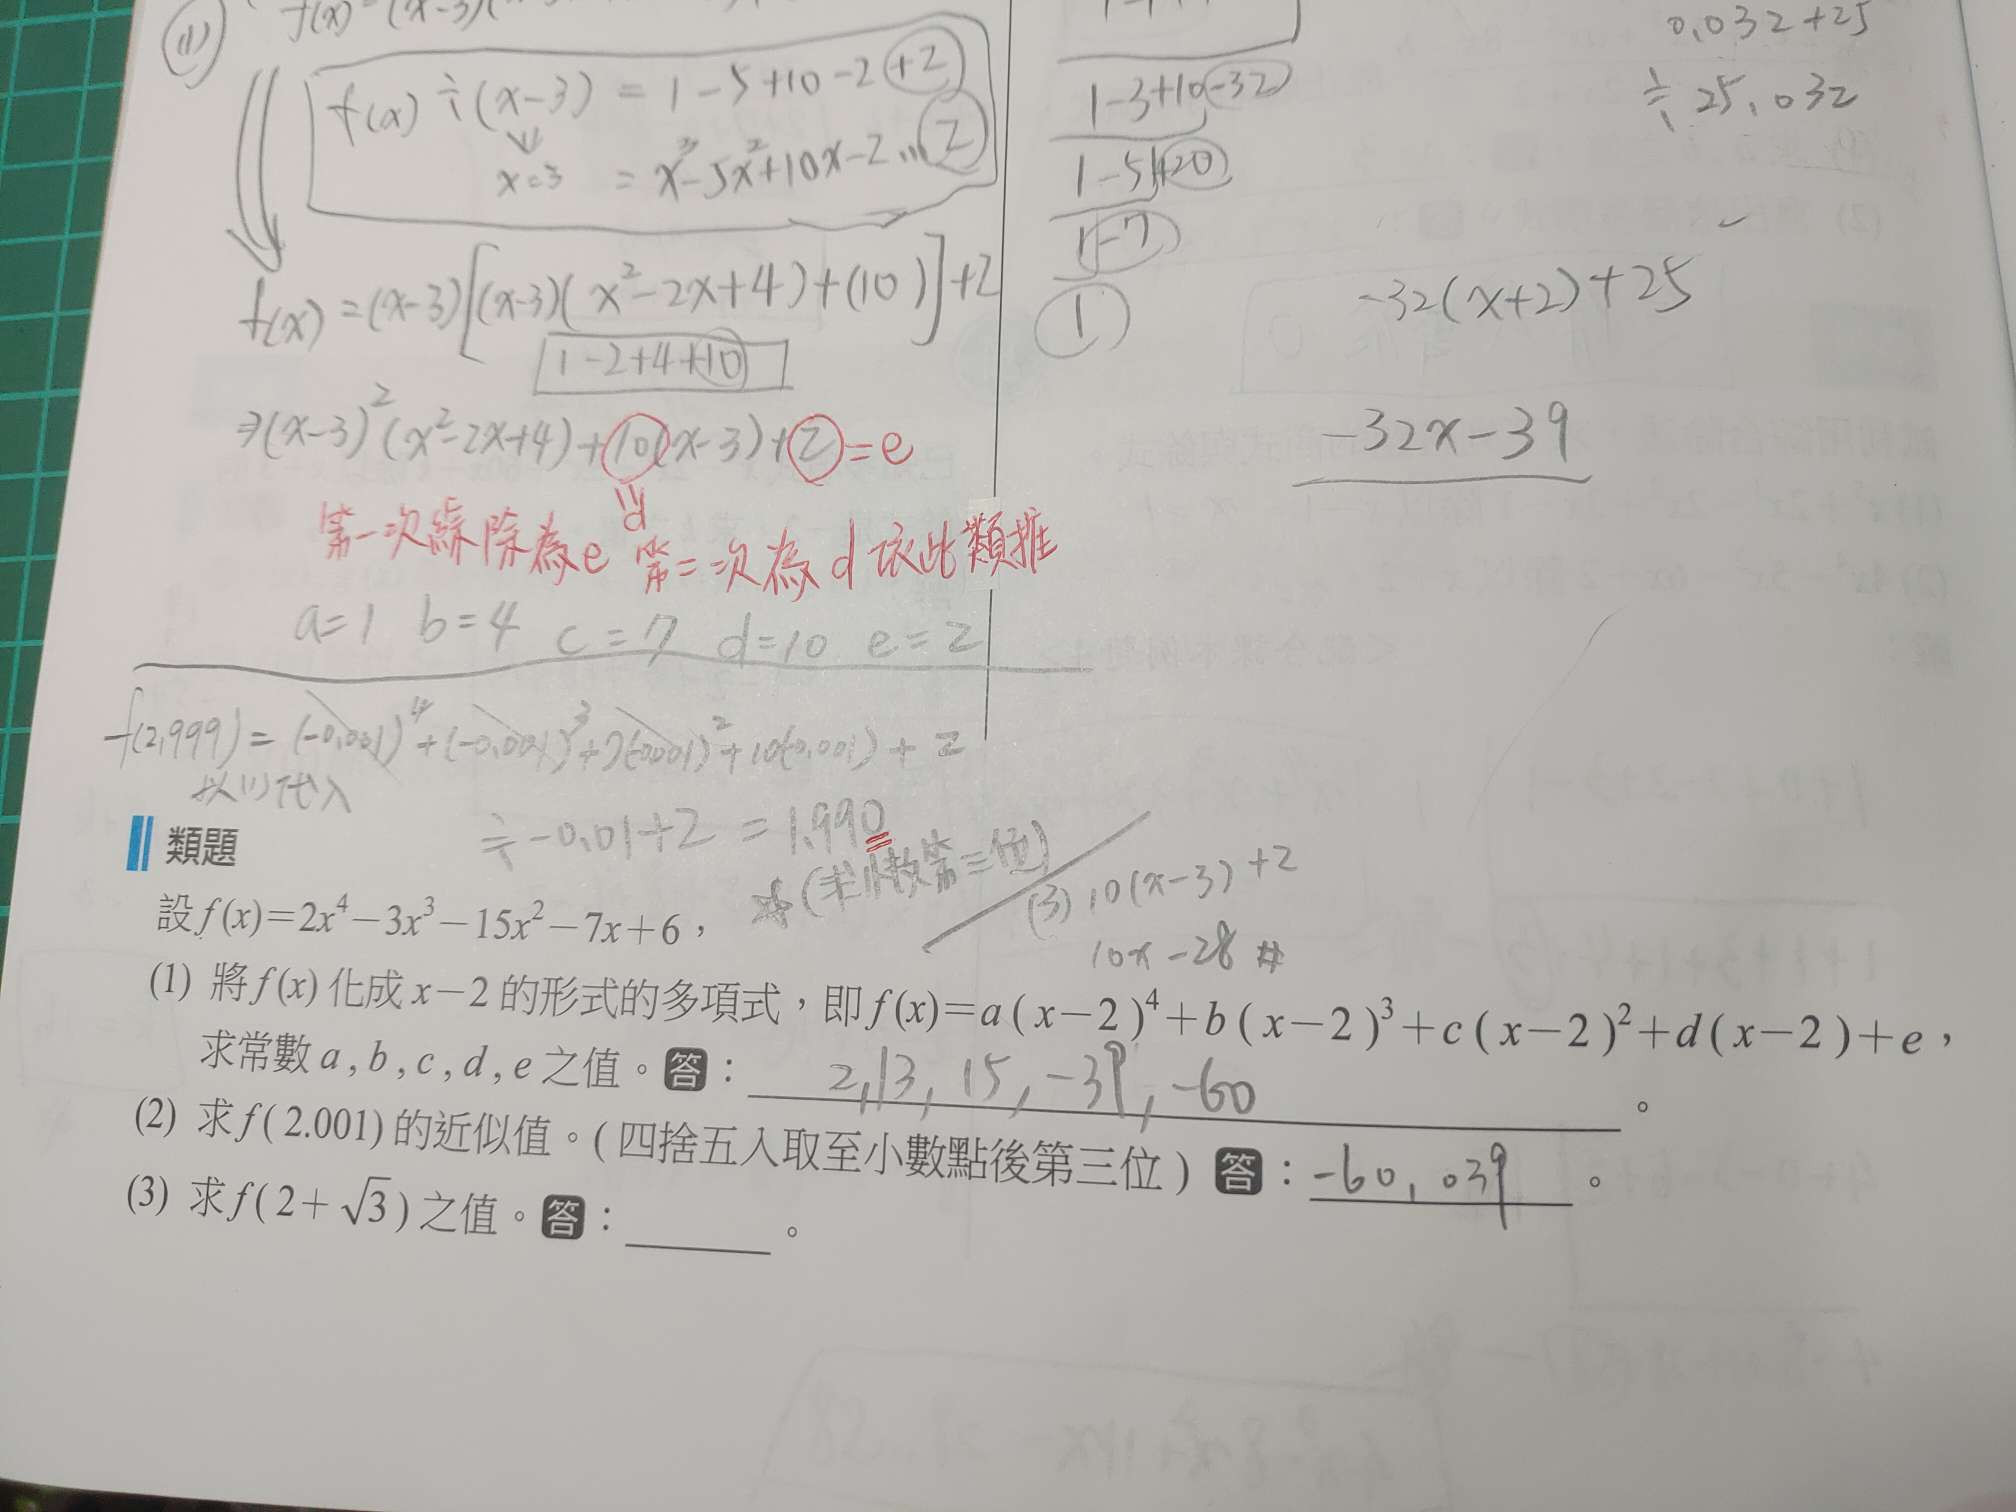 (1) f(x)=(x-3)(
f(x)÷(x-3) = 1-5+10-2+2
x=3 = x³-5x²+10x-2...2
f(x)=(x-3)[(x-3)(x²-2x+4)+(10)]+2
1-2+4+10
⇒(x-3)²(x²-2x+4)+10(x-3)+2=e
d
第一次綜除為e 第二次為d 依此類推
a=1 b=4 c=7 d=10 e=2
f(2.999)=(-0.001)⁴+(-0.001)³+7(-0.001)²+10(-0.001)+2
以(1)代入
≑-0.01+2=1.990
☆(求小數第三位)
(3) 10(x-3)+2
10x-28 #
1-3+10-32
1-5+20
1-7
1
0.032+25
≑25.032
-32(x+2)+25
-32x-39
類題
設f(x)=2x⁴-3x³-15x²-7x+6，
(1) 將f(x)化成x-2的形式的多項式，即f(x)=a(x-2)⁴+b(x-2)³+c(x-2)²+d(x-2)+e，
求常數a,b,c,d,e之值。答：2,13,15,-39,-60。
(2) 求f(2.001)的近似值。(四捨五入取至小數點後第三位) 答：-60.039。
(3) 求f(2+√3)之值。答：。